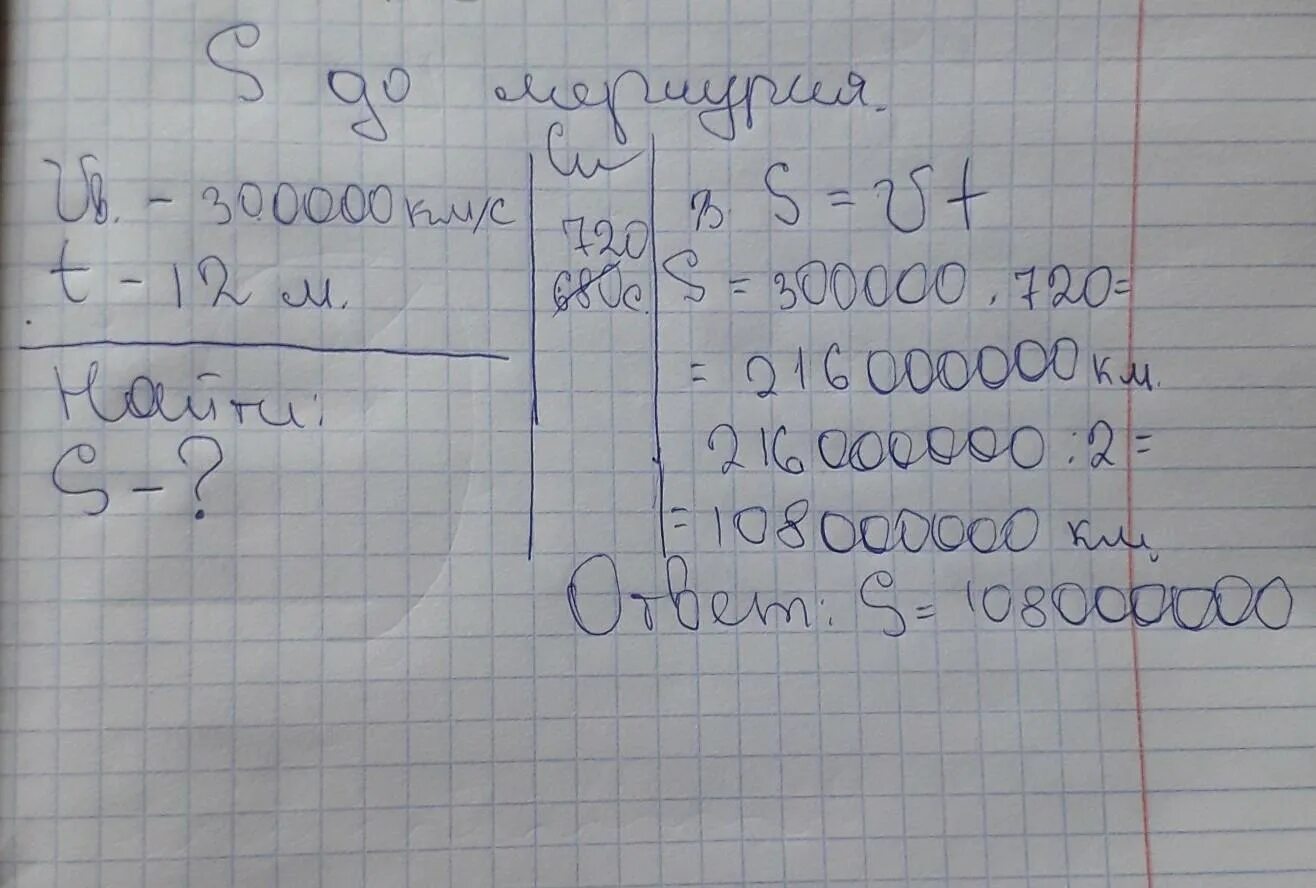 S до меркурия.
Vв. - 300000 км/с
t - 12 м.
Найти:
S - ?
Си
720
680с.
S = Vt
S = 300000 · 720 =
= 216 000000 км.
216 000000 : 2 =
= 108 000000 км.
Ответ: S = 108000000